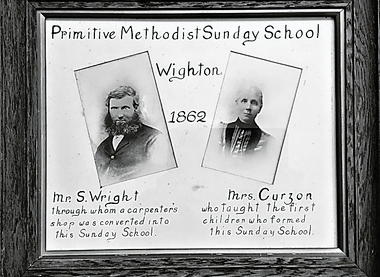 Primitive Methodist Sunday School
Wighton
1862
Mr. S. Wright
through whom a carpenter's
shop was converted into
this Sunday School.
Mrs. Curzon
who taught the first
children who formed
this Sunday School.